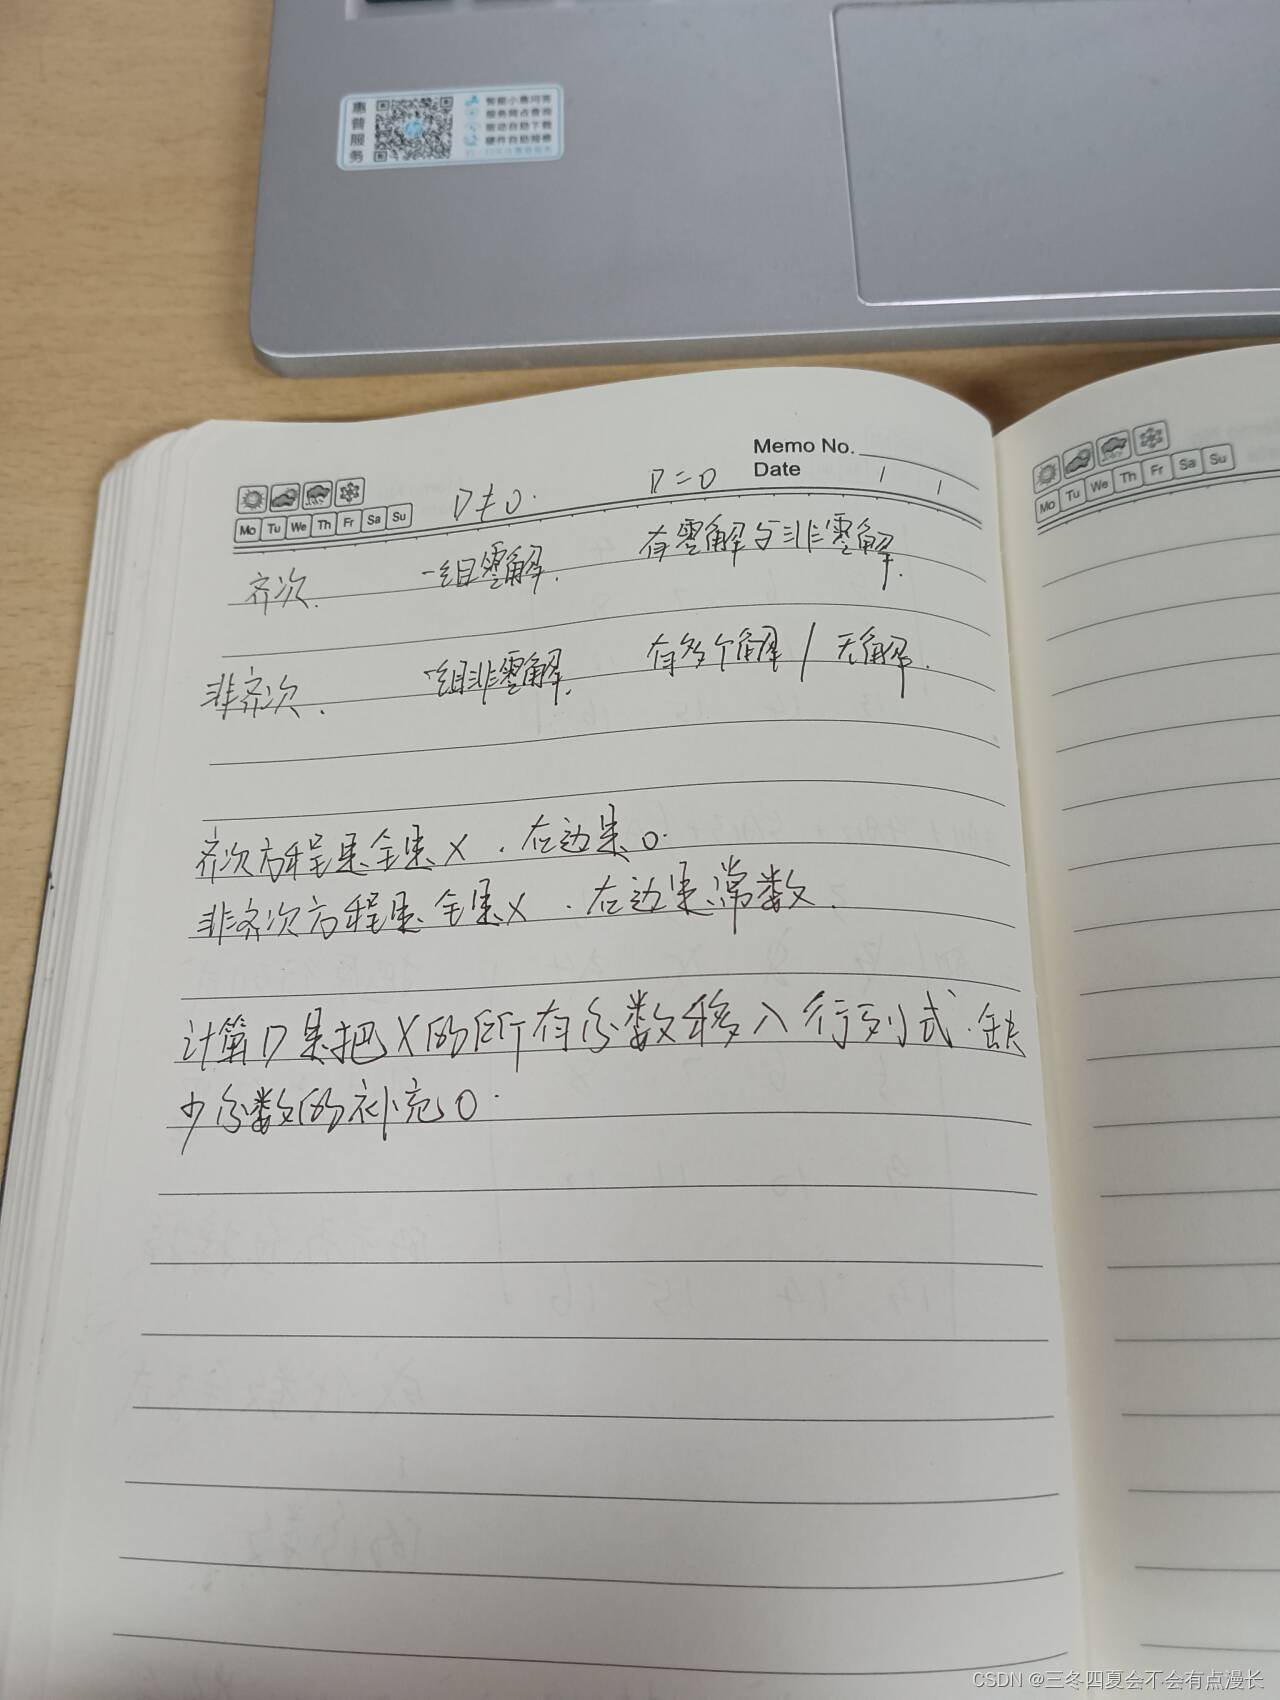 惠普服务
智能小惠问答
服务网点查询
驱动自助下载
硬件自助检修
Memo No.
Date
Mo Tu We Th Fr Sa Su
D≠0. D=0
齐次. 一组零解. 有零解与非零解.
非齐次. 一组非零解. 有多个解 / 无解.
齐次方程是全是X . 右边是0.
非齐次方程是全是X . 右边是常数.
计算D是把X的所有分数移入行列式.缺
少分数的补充0.
Mo Tu We Th Fr Sa Su
CSDN @三冬四夏会不会有点漫长